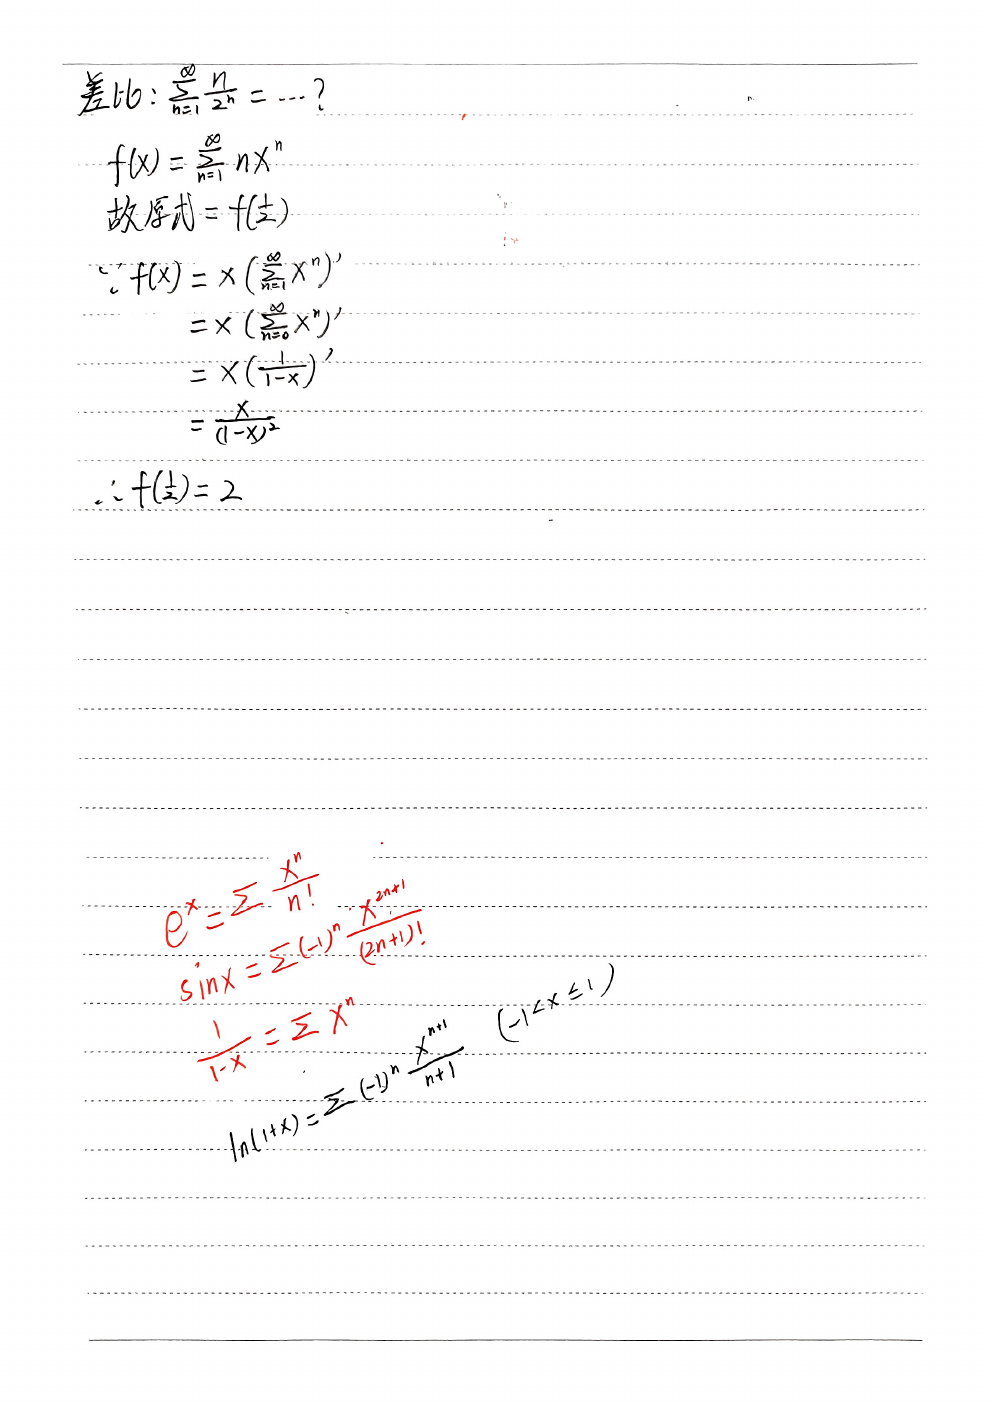 差比: ∑_{n=1}^{∞} n/2ⁿ = ...?
f(x) = ∑_{n=1}^{∞} nxⁿ
故原式 = f(1/2)
∵ f(x) = x(∑_{n=1}^{∞} xⁿ)′
= x(∑_{n=0}^{∞} xⁿ)′
= x(1/(1-x))′
= x/(1-x)²
∴ f(1/2) = 2
eˣ = ∑ xⁿ/n!
sinx = ∑(-1)ⁿ x²ⁿ⁺¹/(2n+1)!
1/(1-x) = ∑ xⁿ
ln(1+x) = ∑(-1)ⁿ xⁿ⁺¹/(n+1) (-1<x≤1)